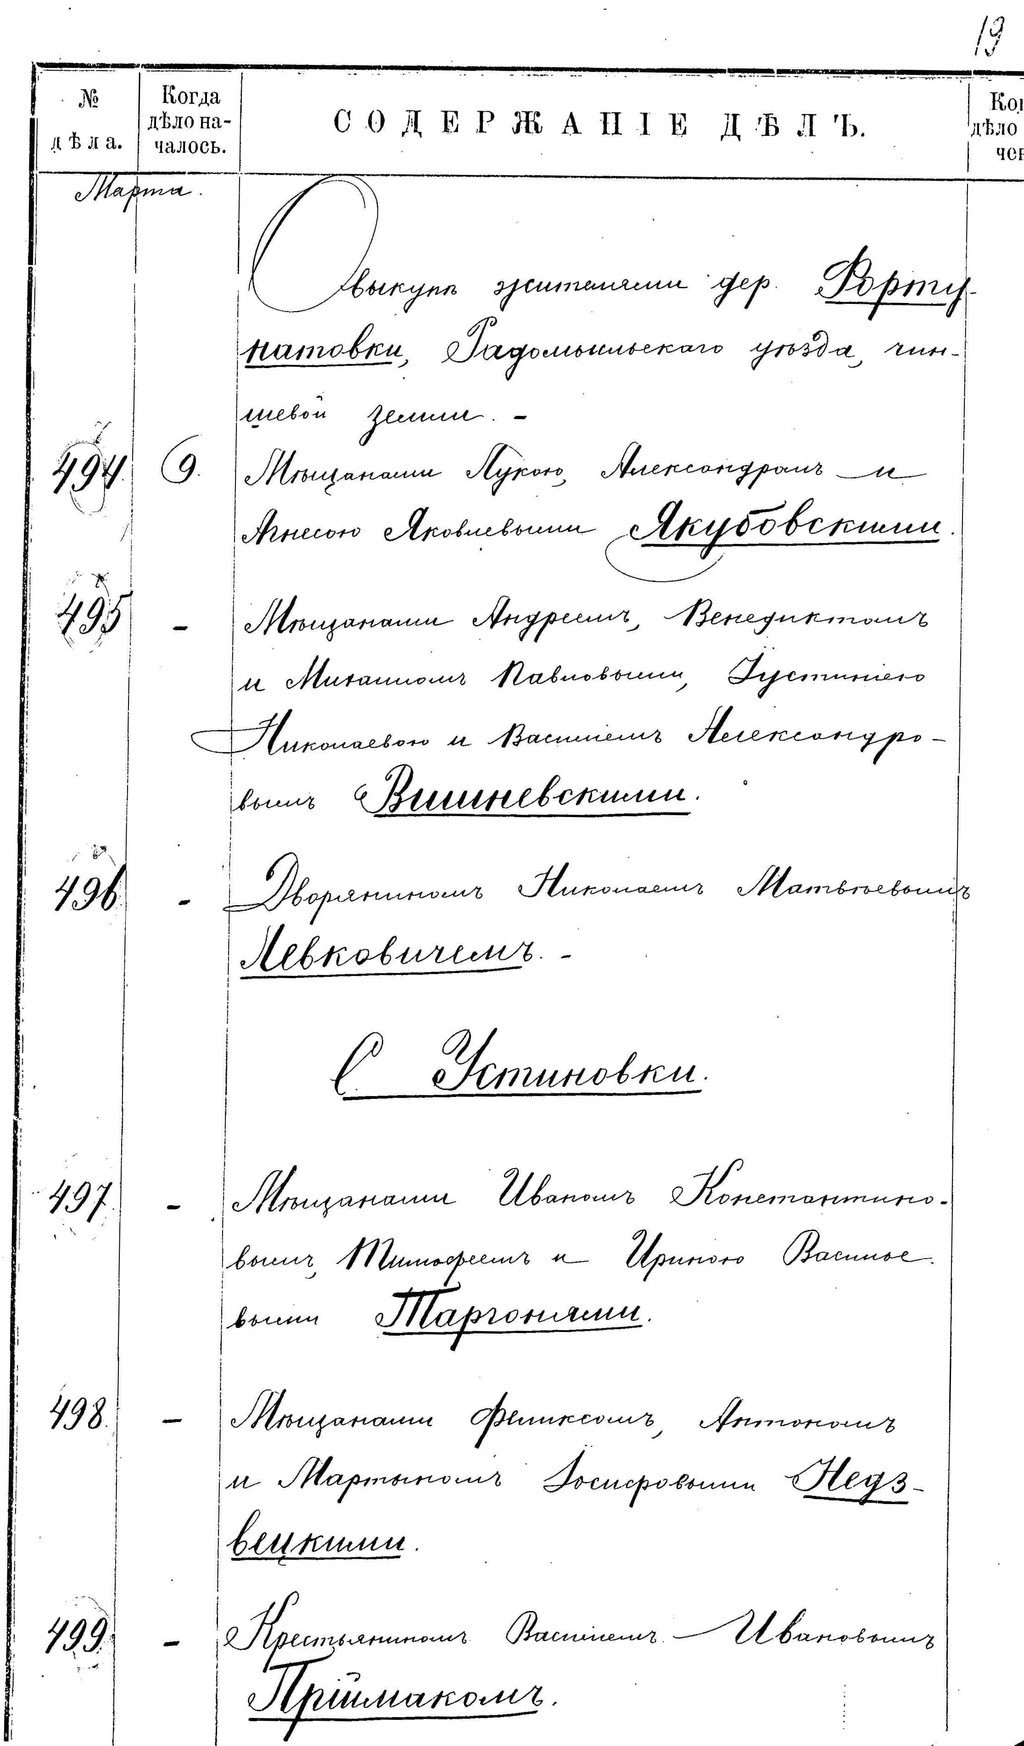 19
№ дѣла.
Когда дѣло началось.
СОДЕРЖАНІЕ ДѢЛЪ.
Ког
дѣло
чен
Марта.
О выкупѣ жителями дер. Форту-
натовки, Радомысльскаго уѣзда, чин-
шевой земли. –
494. 9. Мѣщанами Лукою, Александромъ и
Агнесою Яковлевыми Якубовскими.
495 – Мѣщанами Андреемъ, Венедиктомъ
и Михаиломъ Павловыми, Іустиніею
Николаевою и Василіемъ Александро-
вымъ Вишневскими.
496 – Дворяниномъ Николаемъ Матвѣевымъ
Левковичемъ. –
С. Устиновки.
497. – Мѣщанами Иваномъ Константино-
вымъ, Тимофеемъ и Ириною Василье-
выми Таргонями.
498. – Мѣщанами Феликсомъ, Антономъ
и Мартыномъ Іосифовыми Недз-
вецкими.
499. – Крестьяниномъ Василіемъ Ивановымъ
Пріймакомъ.